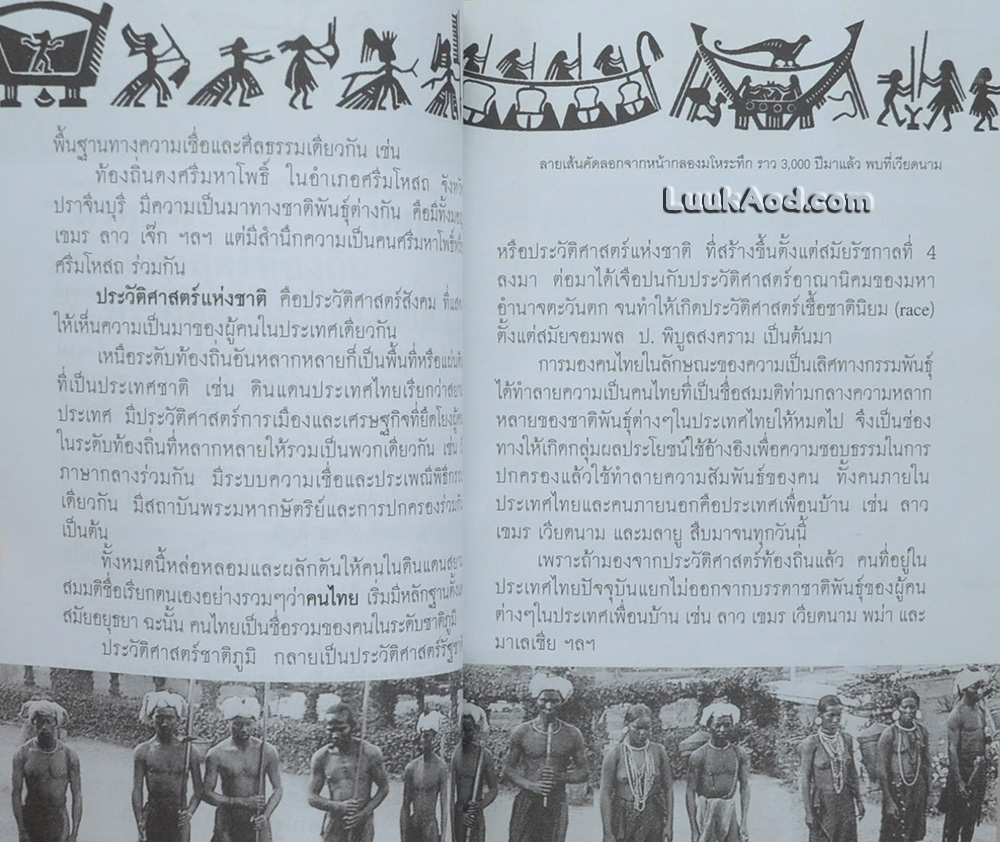 พื้นฐานทางความเชื่อและศีลธรรมเดียวกัน เช่น
ท้องถิ่นดงศรีมหาโพธิ์ ในอำเภอศรีมโหสถ จังหวั
ปราจีนบุรี มีความเป็นมาทางชาติพันธุ์ต่างกัน คือมีทั้งมอญ
เขมร ลาว เจ๊ก ฯลฯ แต่มีสำนึกความเป็นคนศรีมหาโพธิ์
ศรีมโหสถ ร่วมกัน
ประวัติศาสตร์แห่งชาติ คือประวัติศาสตร์สังคม ที่แสด
ให้เห็นความเป็นมาของผู้คนในประเทศเดียวกัน
เหนือระดับท้องถิ่นอันหลากหลายก็เป็นพื้นที่หรือแผ่นดิ
ที่เป็นประเทศชาติ เช่น ดินแดนประเทศไทยเรียกว่าสยาม
ประเทศ มีประวัติศาสตร์การเมืองและเศรษฐกิจที่ยึดโยงผู้ค
ในระดับท้องถิ่นที่หลากหลายให้รวมเป็นพวกเดียวกัน เช่น
ภาษากลางร่วมกัน มีระบบความเชื่อและประเพณีพิธีกรรม
เดียวกัน มีสถาบันพระมหากษัตริย์และการปกครองร่วมกั
เป็นต้น
ทั้งหมดนี้หล่อหลอมและผลักดันให้คนในดินแดนสยาม
สมมติชื่อเรียกตนเองอย่างรวมๆว่าคนไทย เริ่มมีหลักฐานตั้งแ
สมัยอยุธยา ฉะนั้น คนไทยเป็นชื่อรวมของคนในระดับชาติภูมิ
ประวัติศาสตร์ชาติภูมิ กลายเป็นประวัติศาสตร์รัฐชา
ลายเส้นคัดลอกจากหน้ากลองมโหระทึก ราว 3,000 ปีมาแล้ว พบที่เวียดนาม
LuukAod.com
หรือประวัติศาสตร์แห่งชาติ ที่สร้างขึ้นตั้งแต่สมัยรัชกาลที่ 4
ลงมา ต่อมาได้เจือปนกับประวัติศาสตร์อาณานิคมของมหา
อำนาจตะวันตก จนทำให้เกิดประวัติศาสตร์เชื้อชาตินิยม (race)
ตั้งแต่สมัยจอมพล ป. พิบูลสงคราม เป็นต้นมา
การมองคนไทยในลักษณะของความเป็นเลิศทางกรรมพันธุ์
ได้ทำลายความเป็นคนไทยที่เป็นชื่อสมมติท่ามกลางความหลาก
หลายของชาติพันธุ์ต่างๆในประเทศไทยให้หมดไป จึงเป็นช่อง
ทางให้เกิดกลุ่มผลประโยชน์ใช้อ้างอิงเพื่อความชอบธรรมในการ
ปกครองแล้วใช้ทำลายความสัมพันธ์ของคน ทั้งคนภายใน
ประเทศไทยและคนภายนอกคือประเทศเพื่อนบ้าน เช่น ลาว
เขมร เวียดนาม และมลายู สืบมาจนทุกวันนี้
เพราะถ้ามองจากประวัติศาสตร์ท้องถิ่นแล้ว คนที่อยู่ใน
ประเทศไทยปัจจุบันแยกไม่ออกจากบรรดาชาติพันธุ์ของผู้คน
ต่างๆในประเทศเพื่อนบ้าน เช่น ลาว เขมร เวียดนาม พม่า และ
มาเลเซีย ฯลฯ